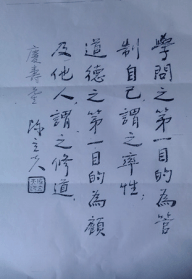 學問之第一目的為管
制自己謂之率性
道德之第一目的為顧
及他人謂之修道
陳立夫